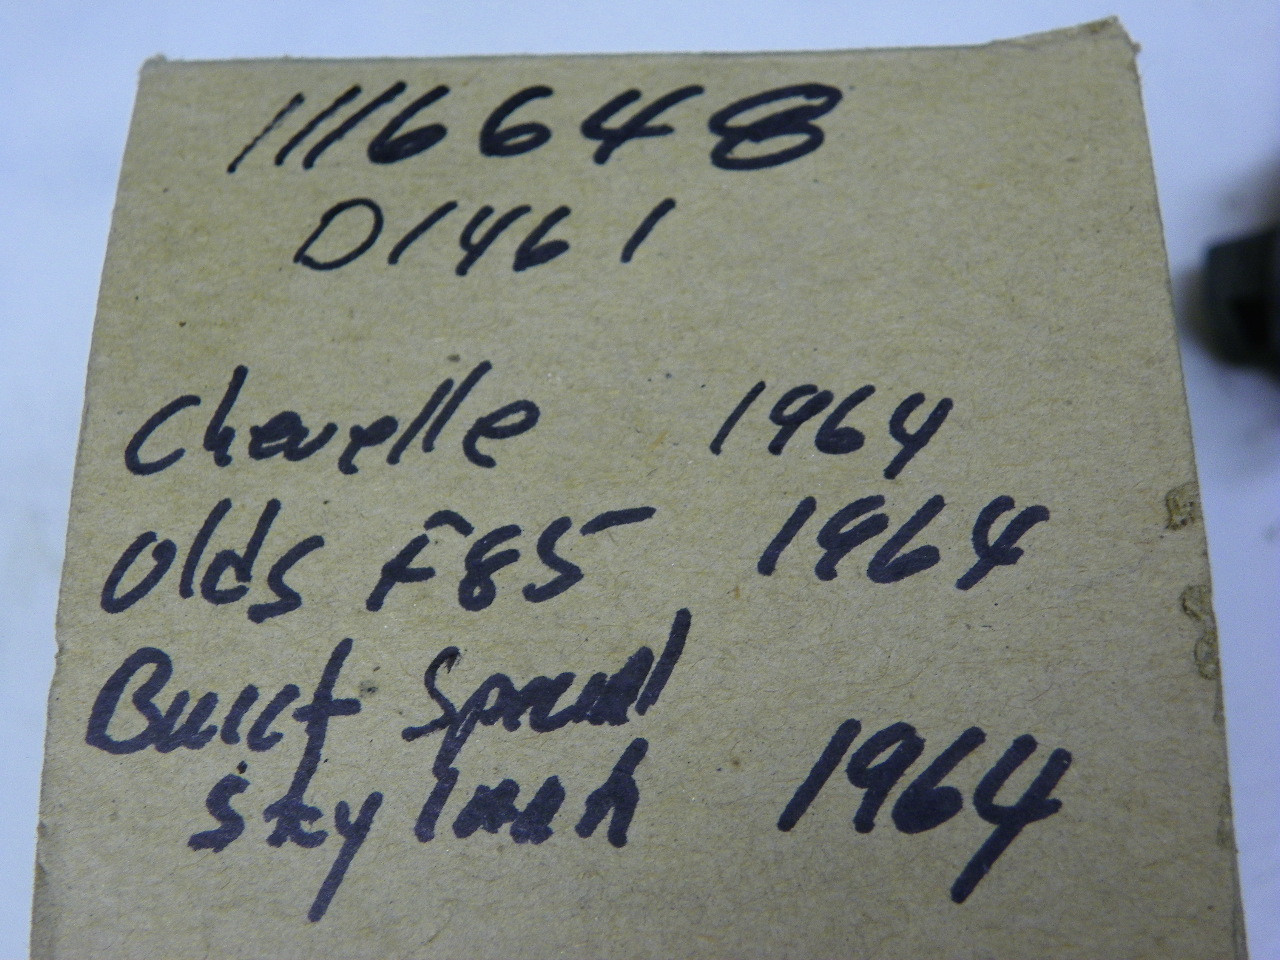 1116648
D1461
Chevelle 1964
Olds F85 1964
Buick Special
Skylark 1964